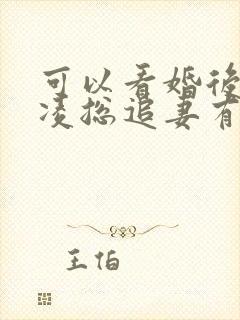 可以看婚後
凌总追妻有
王伯